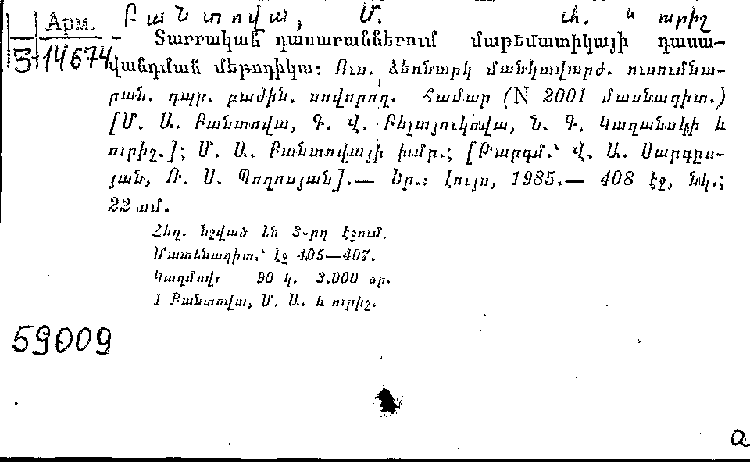 Арм. Բանտովա, Մ. Ա. և ուրիշ
3-14674 Տարրական դասարաններում մաթեմատիկայի դասա-
վանդման մեթոդիկա: Ուս. ձեռնարկ մանկավարժ. ուսումնա-
րան. դպր. բաժին. սովորող. համար (N 2001 մասնագիտ.)
[Մ. Ա. Բանտովա, Գ. Վ. Բելտյուկովա, Ն. Գ. Կաղանսկի և
ուրիշ.]; Մ. Ա. Բանտովայի խմբ.; [Թարգմ.՝ Վ. Ա. Սարգըս-
յան, Ռ. Ս. Պողոսյան].— Եր.: Լույս, 1985.— 408 էջ, նկ.;
22 սմ.
Հեղ. նշված են 3-րդ էջում.
Մատենագիտ.՝ էջ 405—407.
Կազմավ. 90 կ. 3.000 օր.
1 Բանտովա, Մ. Ա. և ուրիշ.
59009
a